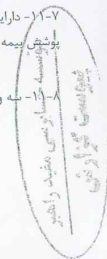 ۷-۱۱- دارایی
پوشش بیمه
۸-۱۱- سه و
موسسه حسابرسی مفید راهبر
پیوست گزارش